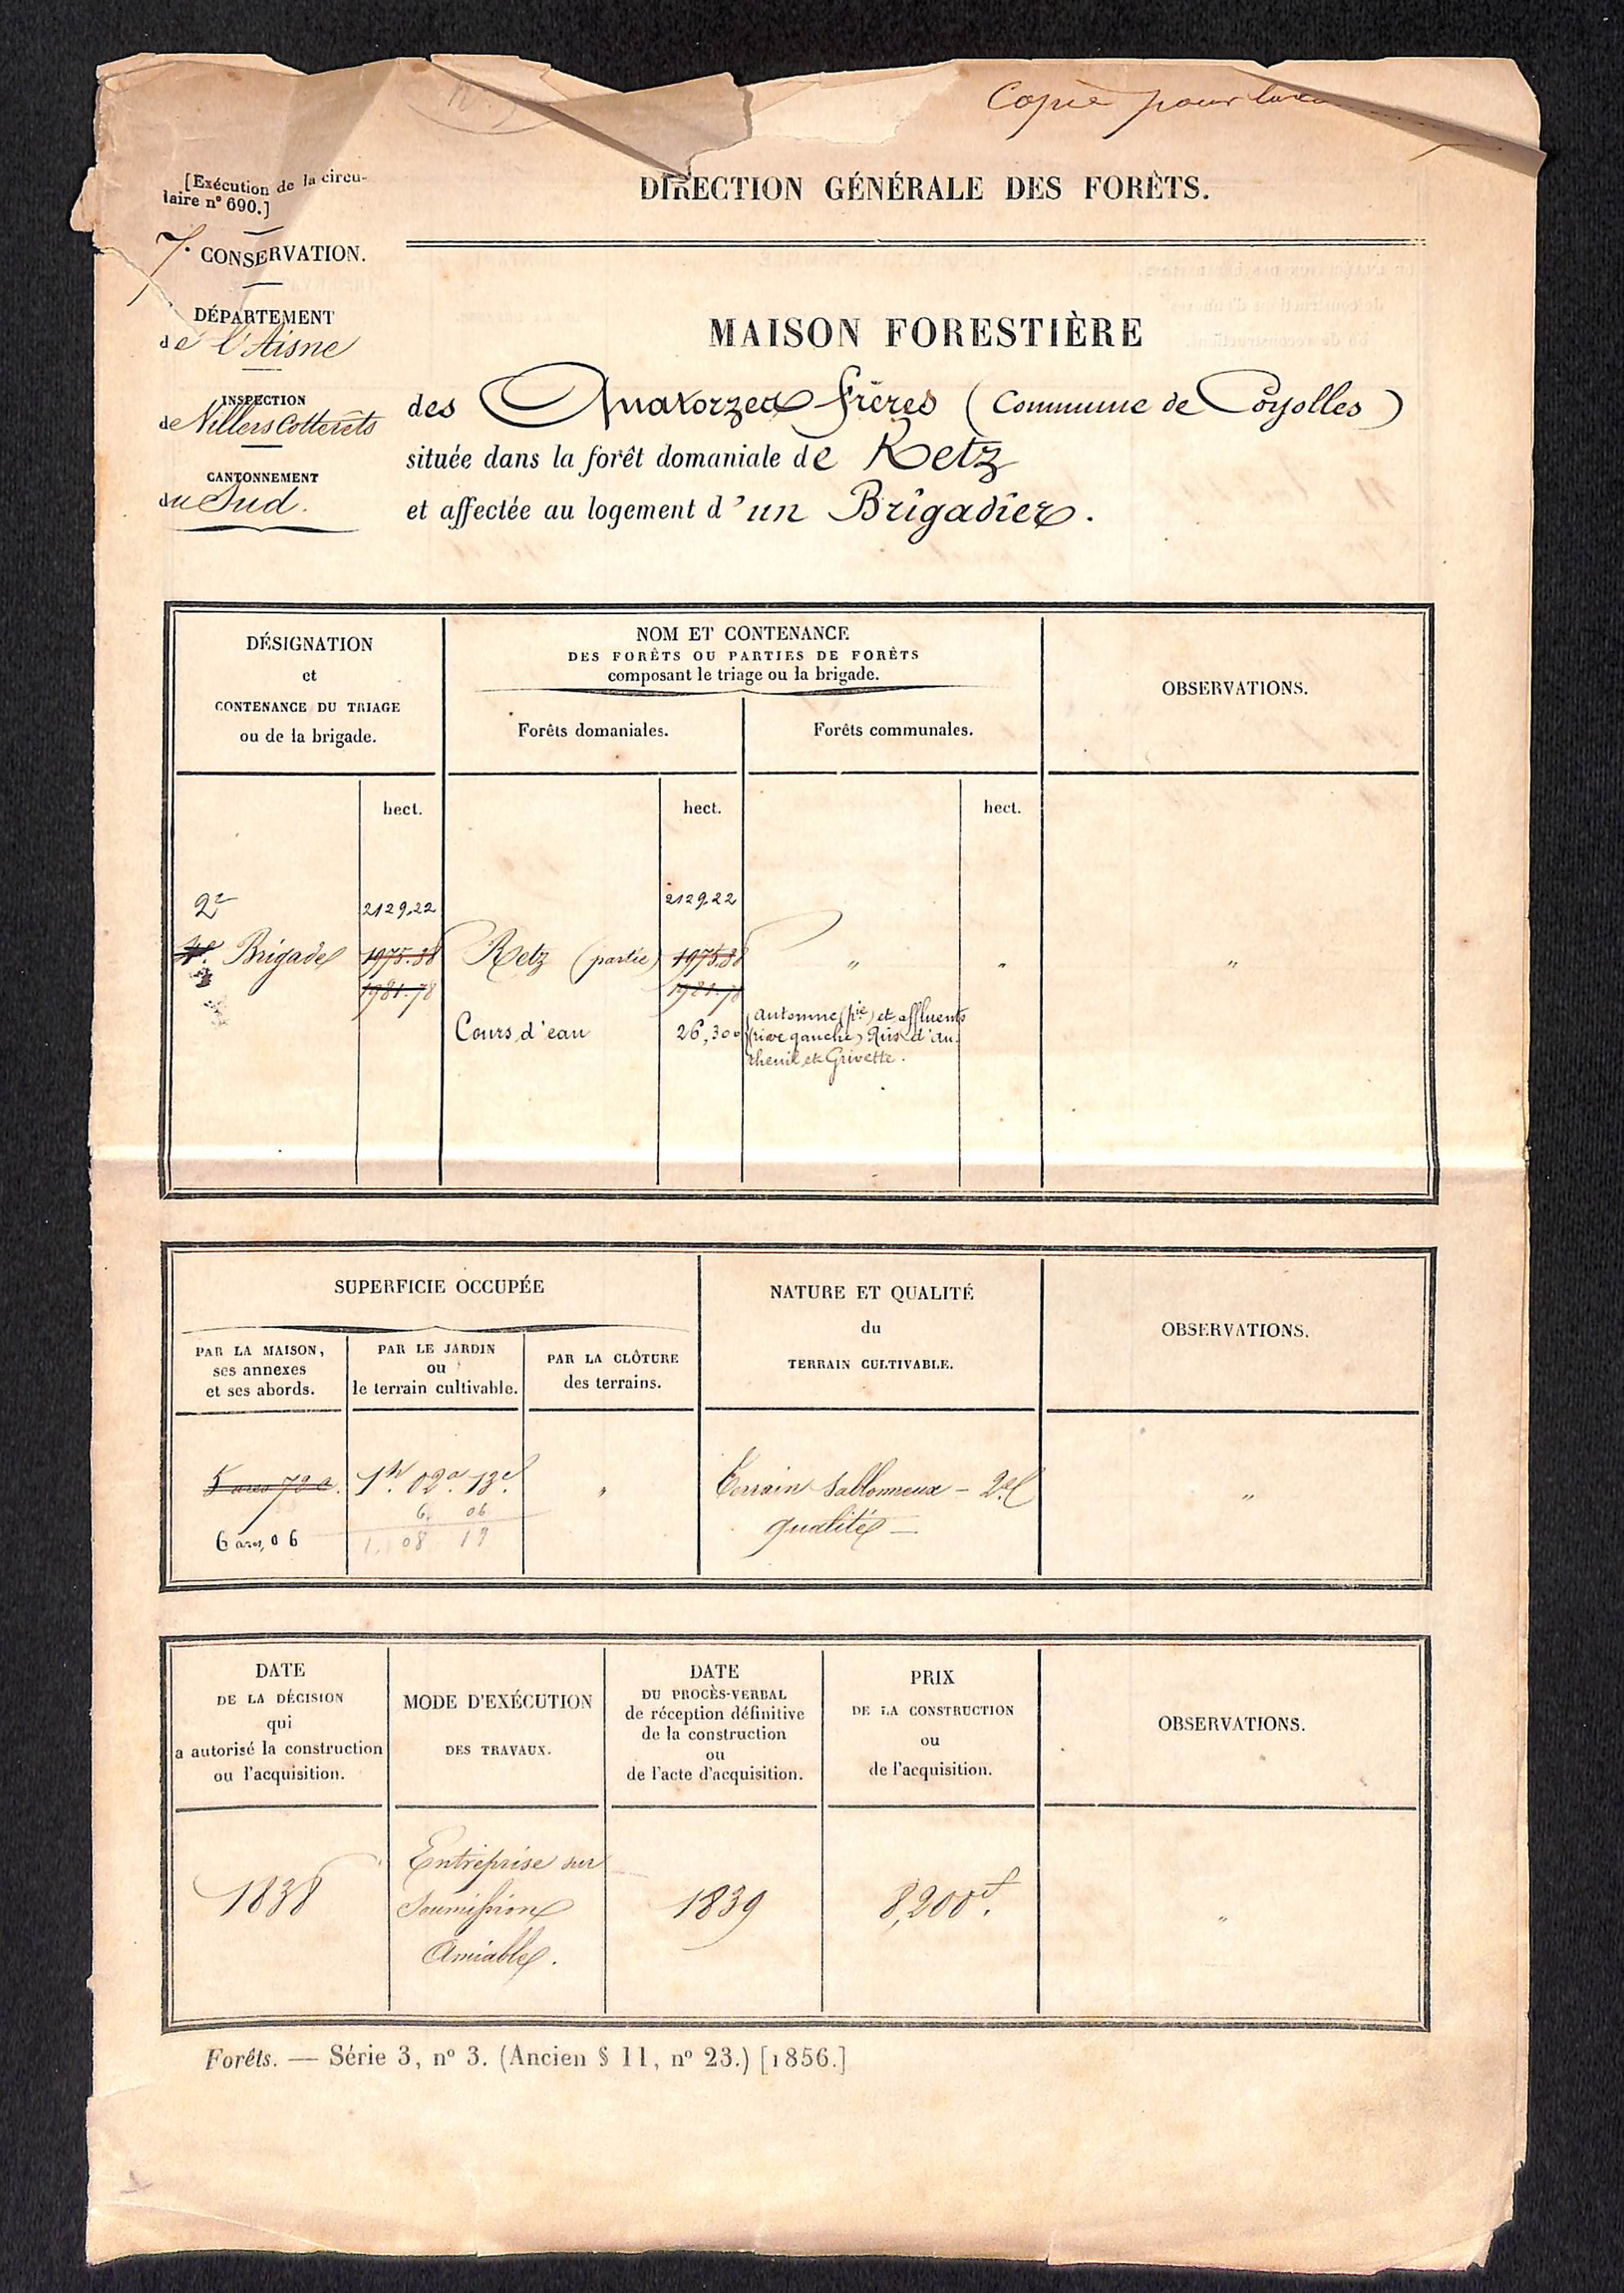 Copie pour
[Exécution de la circu-
laire n° 690.]
7. CONSERVATION.
DÉPARTEMENT
de l'Aisne
INSPECTION
de Villers Cotterêts
CANTONNEMENT
du Sud.
DIRECTION GÉNÉRALE DES FORÊTS.
MAISON FORESTIÈRE
des Quatorze Frères (Commune de Coyolles)
située dans la forêt domaniale de Retz
et affectée au logement d'un Brigadier.
DÉSIGNATION
et
CONTENANCE DU TRIAGE
ou de la brigade.
NOM ET CONTENANCE
DES FORÊTS OU PARTIES DE FORÊTS
composant le triage ou la brigade.
Forêts domaniales.
Forêts communales.
OBSERVATIONS.
hect.
hect.
hect.
2e 2129,22 2129,22
4e. Brigade 1975.38 Retz (partie) 1975.38 " " "
1981.78 1981.78
Cours d'eau 26,300
Automne (pie) et affluents
(rive gauche) Rûs d'Au-
theuil et Grivette.
SUPERFICIE OCCUPÉE
PAR LA MAISON,
ses annexes
et ses abords.
PAR LE JARDIN
ou
le terrain cultivable.
PAR LA CLÔTURE
des terrains.
NATURE ET QUALITÉ
du
TERRAIN CULTIVABLE.
OBSERVATIONS.
5 ares 72 c. 1h. 02a. 13c. " Terrain sablonneux – 2e "
6. 06 qualité —
6 ares, 06 1. 08 19
DATE
DE LA DÉCISION
qui
a autorisé la construction
ou l'acquisition.
MODE D'EXÉCUTION
DES TRAVAUX.
DATE
DU PROCÈS-VERBAL
de réception définitive
de la construction
ou
de l'acte d'acquisition.
PRIX
DE LA CONSTRUCTION
ou
de l'acquisition.
OBSERVATIONS.
1838
Entreprise sur
Soumission
Amiable.
1839
8,200f.
"
Forêts. — Série 3, n° 3. (Ancien § 11, n° 23.) [1856.]